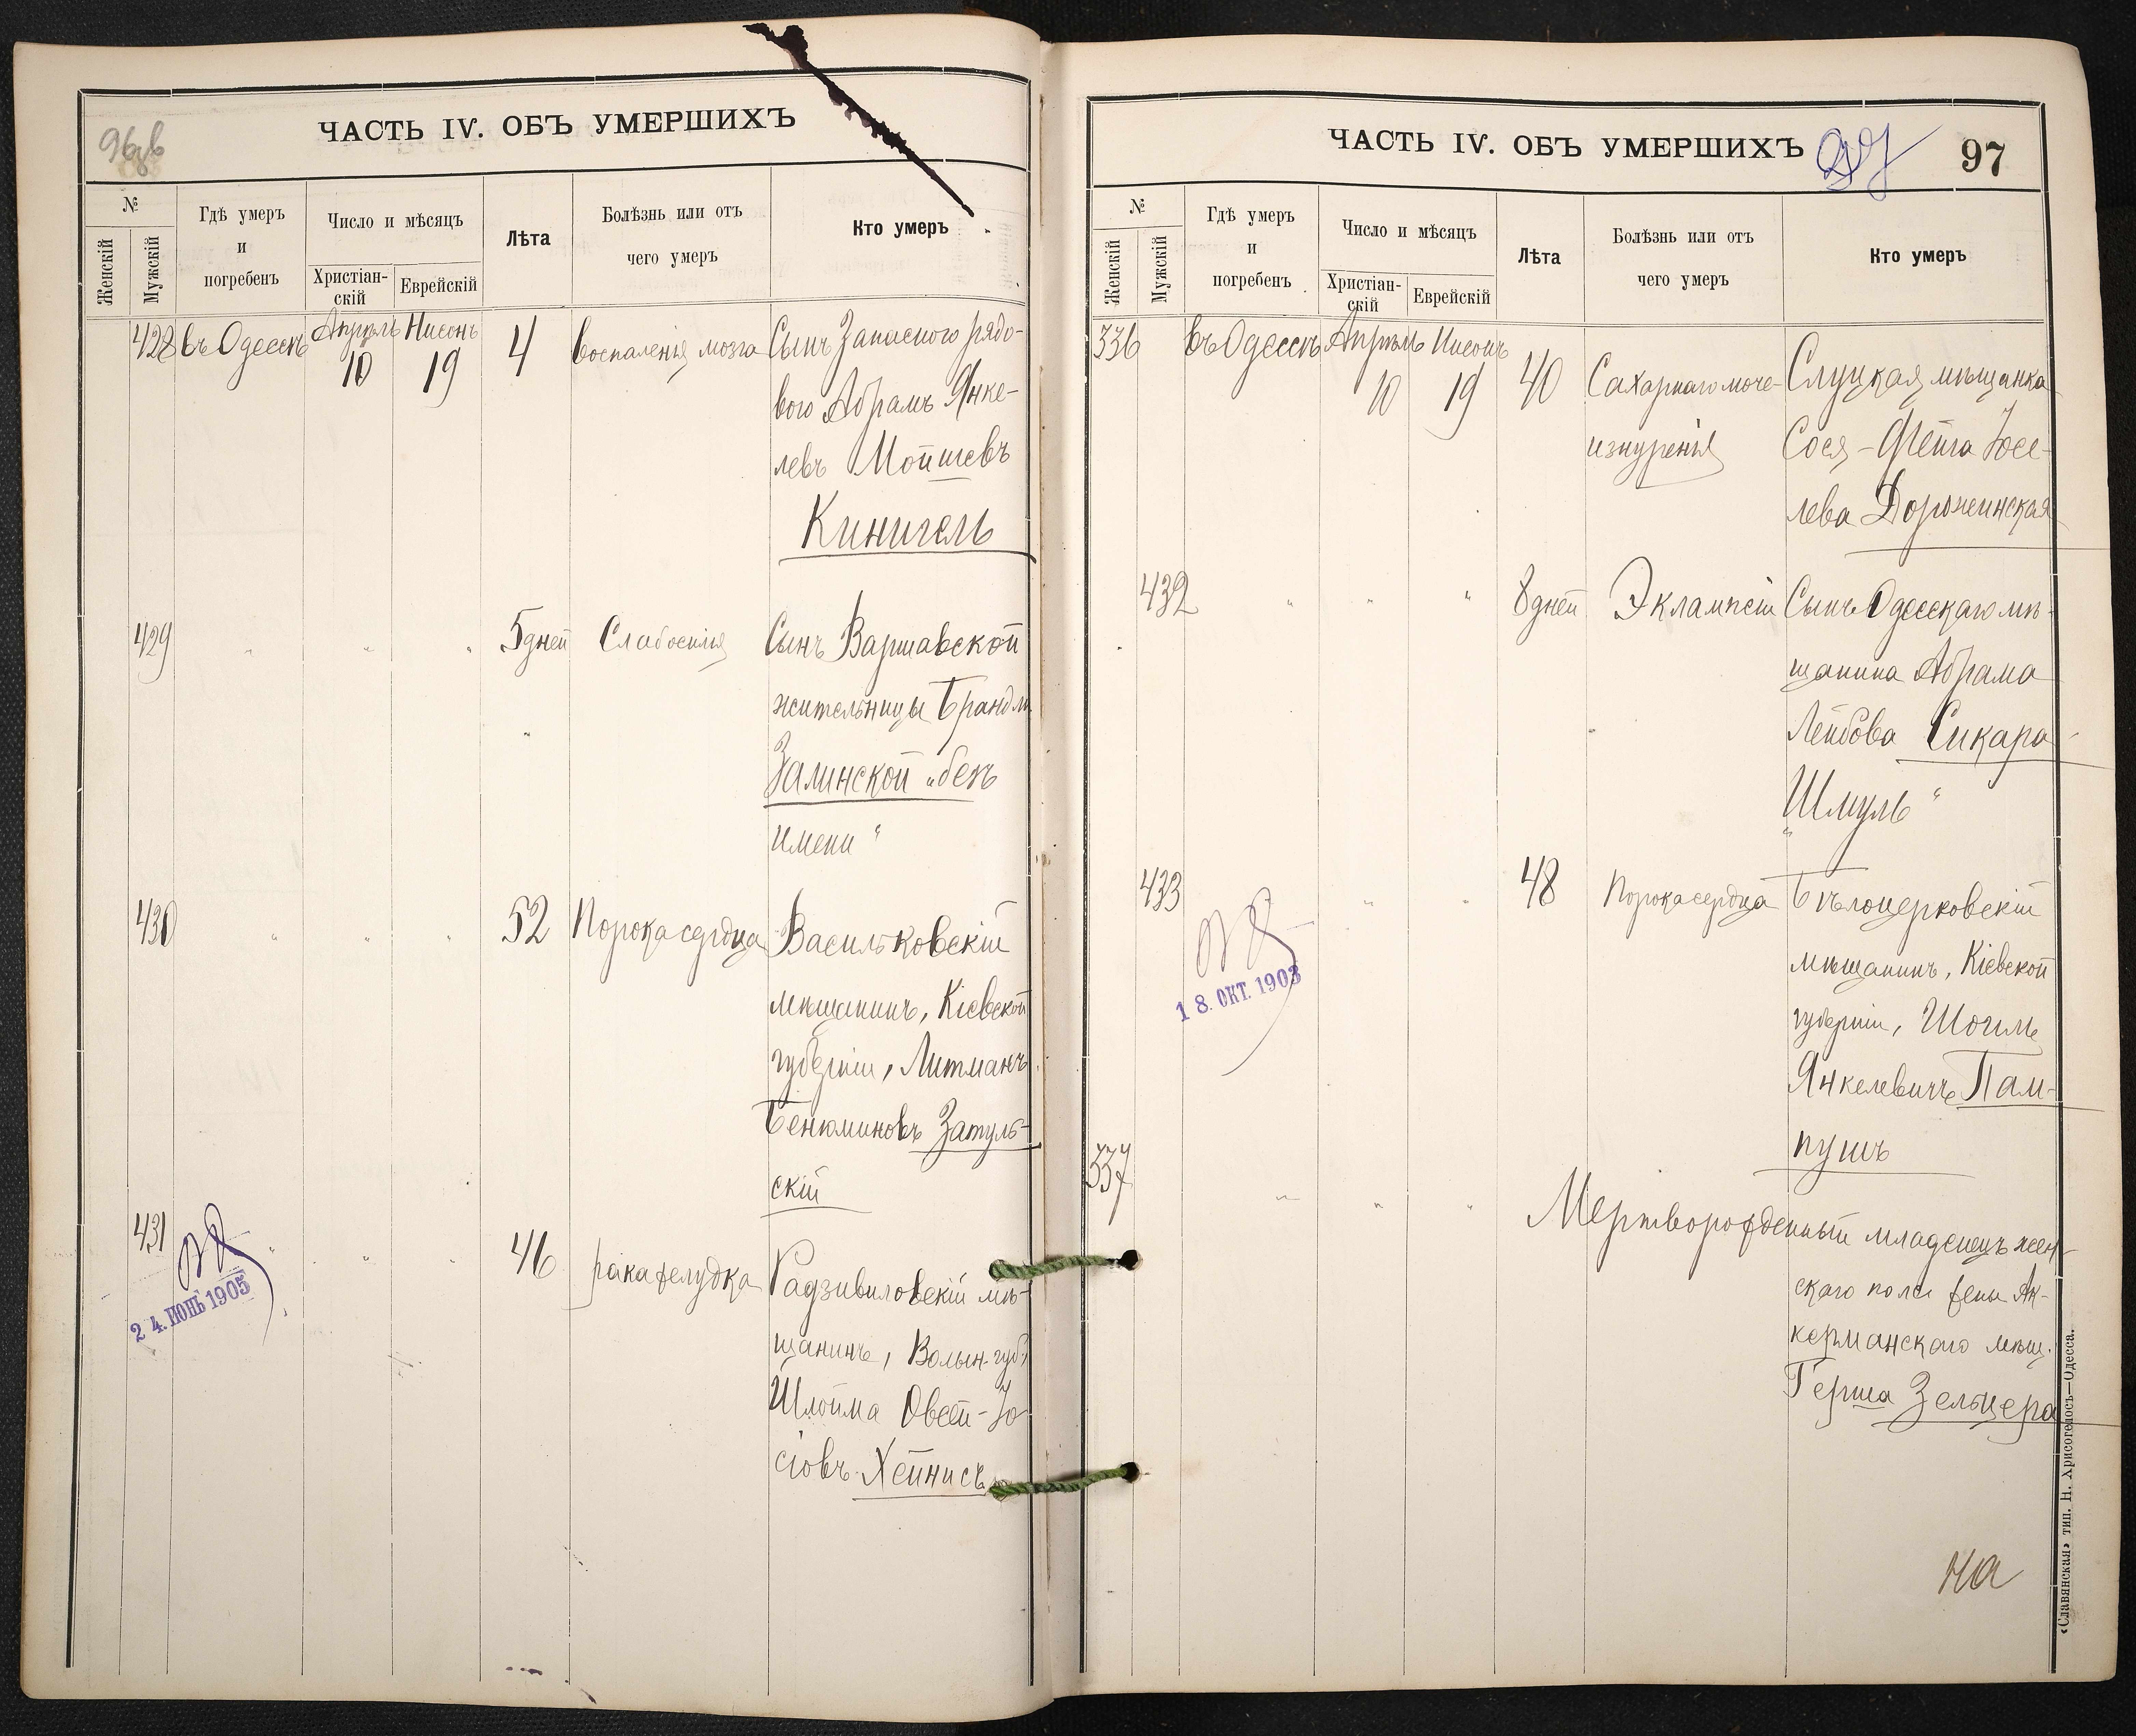 96 об
ЧАСТЬ IV. ОБЪ УМЕРШИХЪ
№
Женскій
Мужскій
Гдѣ умеръ
и
погребенъ
Число и мѣсяцъ
Христіан-
скій
Еврейскій
Лѣта
Болѣзнь или отъ
чего умеръ
Кто умеръ
428 въ Одессѣ Апрѣль Нисонъ 4 воспаленія мозга Сынъ Запасного рядо-
10 19 вого Абрамъ Янке-
левъ Мойшевъ
Кинигель
429 " " " 5 дней Слабосилія Сынъ Варшавской
жительницы Брандли
Залинской „безъ
имени“
430 " " " 52 Порока сердца Васильковскій
мѣщанинъ, Кіевской
губерніи, Литманъ
Бенюминовъ Затуль-
скій
431 " " " 46 рака желудка Радзивиловскій мѣ-
щанинъ, Волын. губ.
Шлойма Овсей-Іо
сіовъ Хейнисъ
2 4. ІЮНЬ 1905
ЧАСТЬ IV. ОБЪ УМЕРШИХЪ
97
№
Женскій
Мужскій
Гдѣ умеръ
и
погребенъ
Число и мѣсяцъ
Христіан-
скій
Еврейскій
Лѣта
Болѣзнь или отъ
чего умеръ
Кто умеръ
336 въ Одессѣ Апрѣль Нисонъ 40 Сахарнаго моче- Слуцкая мѣщанка
10 19 изнуренія Сося-Фейга Іосе-
лева Дорожинская
432 " " " 8 дней Эклампсіи Сынъ Одесскаго мѣ-
щанина Абрама
Лейбова Сикара
„Шмуль“
433 " " 48 Порока сердца Бѣлоцерковскій
мѣщанинъ, Кіевской
губерніи, Шоилъ
Янкелевичъ Пам-
пушъ
1 8. ОКТ. 1903
337 " " " Мертворожденный младенецъ жен-
скаго пола жены Ак-
керманскаго мѣщ.
Герша Зельцера
на
«Славянская» тип. Н. Хрисогелосъ—Одесса.